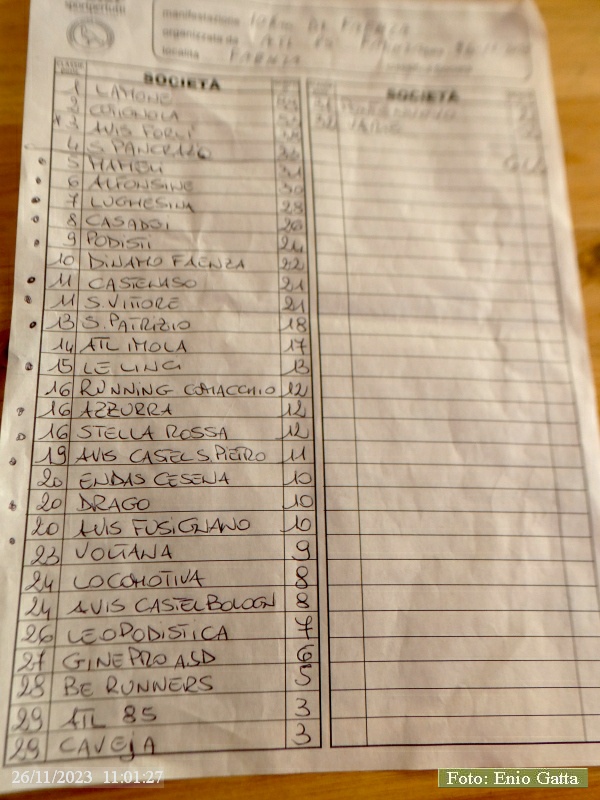 manifestazione
organizzata da
località FAENZA
SOCIETÀ
1 LAMONE
2 COTIGNOLA
3 AVIS FORLÌ
4 S. PANCRAZIO
5 MAMELI 31
6 ALFONSINE 30
7 LUGHESINA 28
8 CASADEI 26
9 PODISTI 24
10 DINAMO FAENZA 22
11 CASTENASO 21
11 S. VITTORE 21
13 S. PATRIZIO 18
14 ATL IMOLA 17
15 LE LINCI 13
16 RUNNING COMACCHIO 12
16 AZZURRA 12
16 STELLA ROSSA 12
19 AVIS CASTEL S PIETRO 11
20 ENDAS CESENA 10
20 DRAGO 10
20 AVIS FUSIGNANO 10
23 VOLTANA 9
24 LOCOMOTIVA 8
24 AVIS CASTELBOLOGN 8
26 LEOPODISTICA 7
27 GINEPRO ASD 6
28 BE RUNNERS 5
29 ATL 85 3
29 CAVEJA 3
SOCIETÀ
26/11/2023 11:01:27
Foto: Enio Gatta